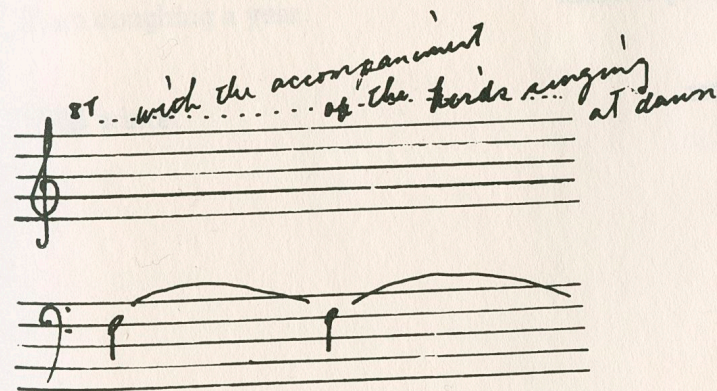 8T...with the accompaniment
of the birds singing
at dawn